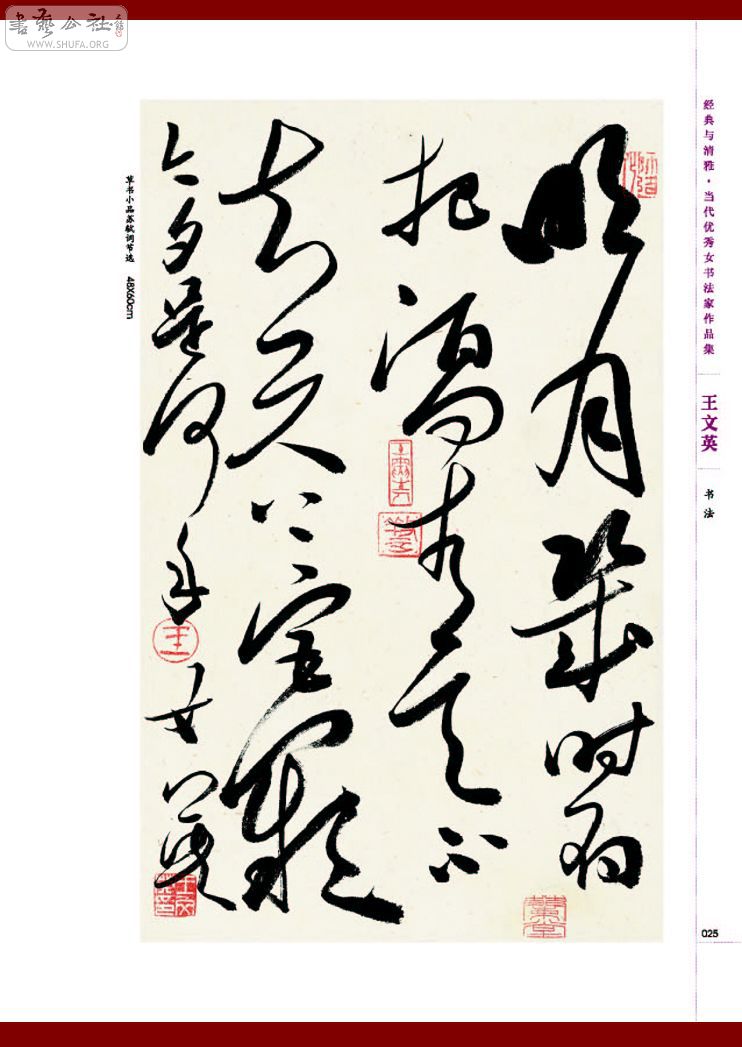 書藝公社
WWW.SHUFA.ORG
经典与清雅·当代优秀女书法家作品集
王文英
书法
明月幾时有
把酒问青天不
知天上宫阙
今夕是何年 文英
王
草书小品苏轼词节选 48X60cm
025